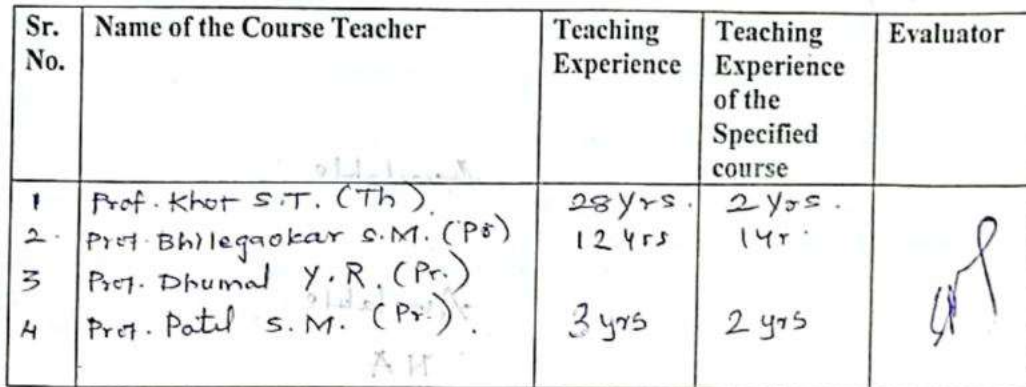 Sr. No. Name of the Course Teacher Teaching Experience Teaching Experience of the Specified course Evaluator
1 Prof. Khot S.T. (Th). 28 Yrs. 2 Yrs.
2. Prof. Bhilegaokar S.M. (Pr) 12 Yrs 1 Yr.
3 Prof. Dhumal Y.R. (Pr.)
4 Prof. Patil S.M. (Pr). 3 yrs 2 yrs